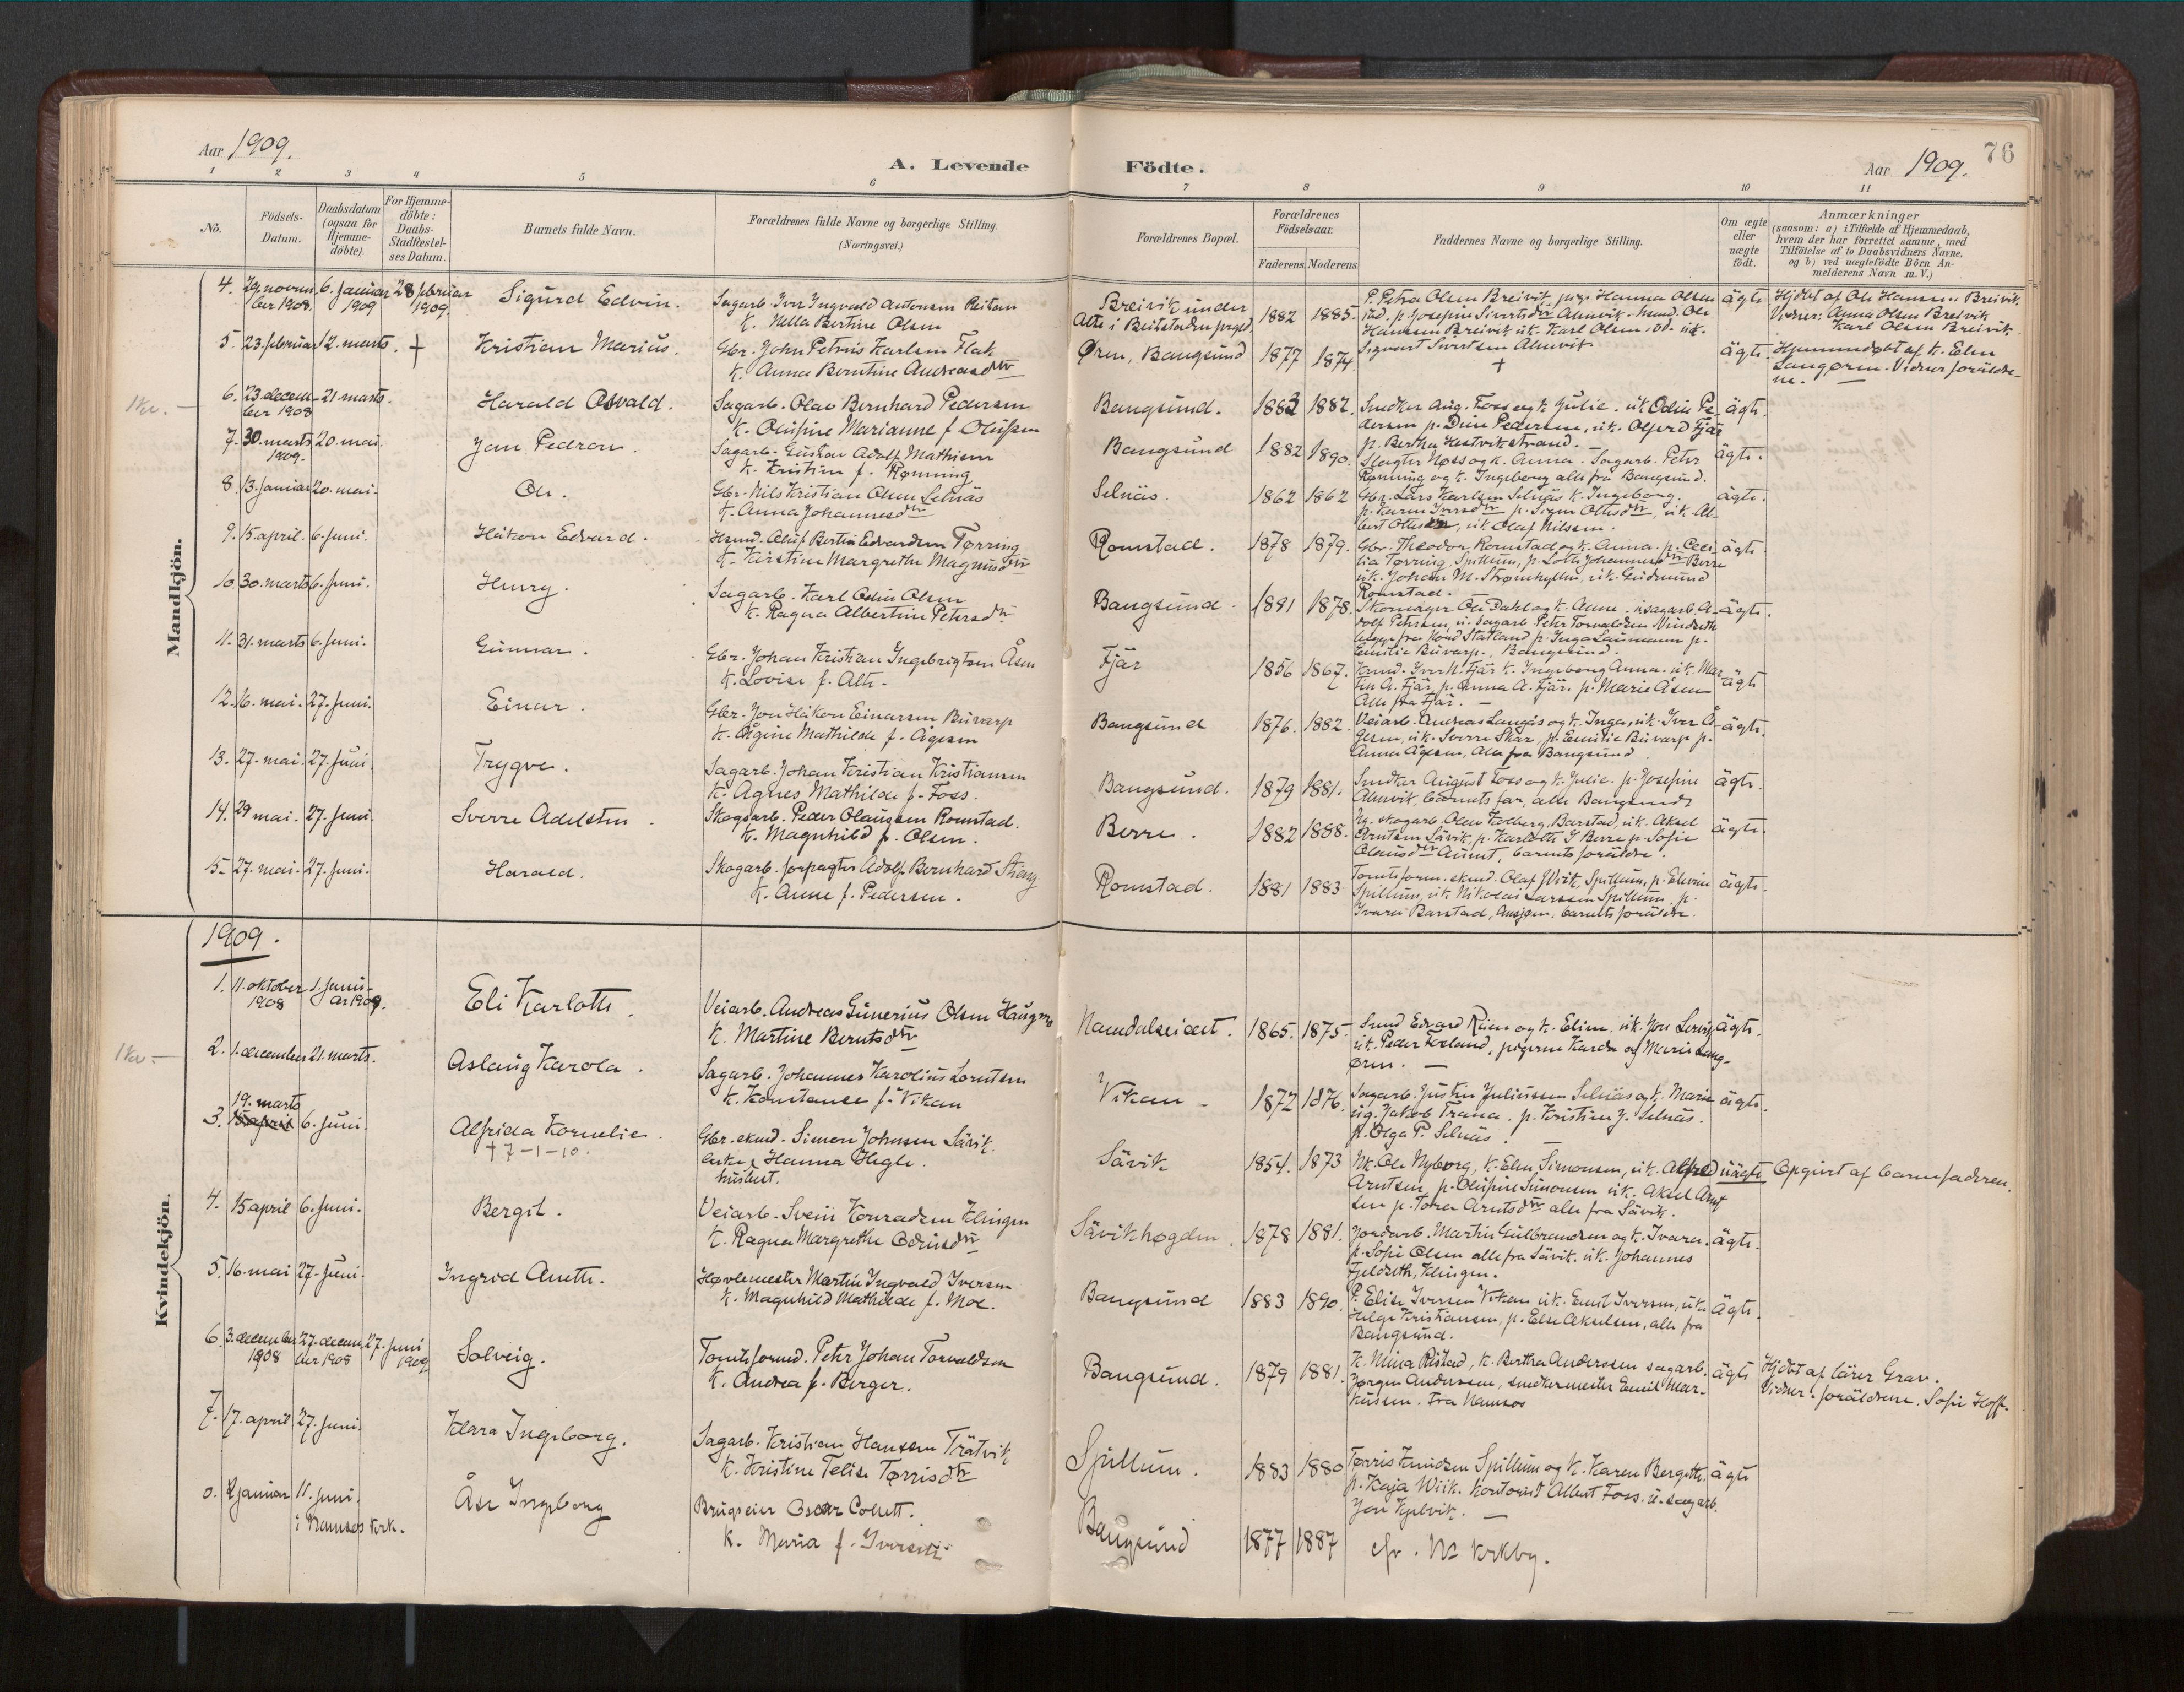 Aar 1909.
A. Levende Födte.
Aar 1909.
76
1 2 3 4 5 6 7 8 9 10 11
No.
Födsels-
Datum.
Daabsdatum
(ogsaa for
Hjemme-
döbte).
For Hjemme-
döbte:
Daabs-
Stadfæstel-
ses Datum.
Barnets fulde Navn.
Forældrenes fulde Navne og borgerlige Stilling.
(Næringsvei.)
Forældrenes Bopæl.
Forældrenes
Födselsaar.
Faderens. Moderens.
Faddernes Navne og borgerlige Stilling.
Om ægte
eller
uægte
födt.
Anmærkninger
(saasom: a) i Tilfælde af Hjemmedaab,
hvem der har forrettet samme, med
Tilföielse af to Daabsvidners Navne,
og b) ved uægtefödte Börn An-
melderens Navn m. V.)
Mandkjön.
4. 29 novem
ber 1908. 6. januar
1909 28 februar
1909. Sigurd Edvin.
Sagarb. Iver Ingvald Antonsen Reitan
k. Nella Bertine Olsen
Breivik under
Alte i Beitstaden prgjld. 1882 1885.
P. Petra Olsen Breivik, pige Hanna Olsen
ibd. p. Josefine Sivertsdtr Almvik. Ole
Hanssen Breivik uk. Karl Olsen ibd. uk.
Sigvart Sivertsen Almvik
ägte. Hjdøbt af Ole Hanssen Breivik.
Vidner: Anna Olsen Breivik
Karl Olsen Breivik.
5. 23. februar 12. marts. + Kristian Marius.
Gbr. John Petrus Karlsen Flak
k. Anna Berntine Andreasdtr
Ørin, Bangsund 1877 1874. + ägte. Hjemmedøbt af k. Elen
Langørin. Vidner foräldre-
ne.
1 kv.
6. 23. decem-
ber 1908 21. marts. Harald Osvald.
Sagarb. Olav Bernhard Pedersen
k. Olufine Marianne f. Olufsen
Bangsund. 1883 1882.
Snedker Aug. Foss og k. Julie. uk. Odin Pe-
dersen p. Dina Pedersen, uk. Olferd Fjär
p. Bertha Hestvikstrand. ägte.
7. 30. marts
1909. 20. mai. Jon Pedron.
Sagarb. Gustav Adolf Mathisen
k. Kristine f. Rønning
Bangsund 1882 1890.
Slagter Høss og k. Anna. Sagarb. Peter
Rønning og k. Ingeborg alle fra Bangsund. ägte.
8. 13. januar 20. mai. Ole.
Gbr. Nils Kristian Olsen Selnäs
k. Anna Johannesdtr
Selnäs. 1862 1862
Gbr. Lars Karlsen Selnäs k. Ingeborg.
p. Karen Iversdtr p. Signe Ottesdtr, uk. Al-
bert Ottesen, uk. Olaf Nilssen. ägte.
9. 15. april. 6. juni. Håkon Edvard.
Hsmd. Oluf Bertin Edvardsen Tørring
k. Kirstine Margrethe Magnusdtr
Romstad. 1878 1879.
Gbr. Theodor Romstad og k. Anna. p. Ceci-
lia Tørring, Spillum, p. Lotte Johannesdtr Berre
uk. Johan M. Strømhyllen, uk. Gudmund
Romstad. ägte.
10. 30. marts 6. juni. Henry.
Sagarb. Karl Odin Olsen
k. Ragna Albertine Petersdtr
Bangsund. 1881 1878.
Skomager Ole Dahl og k. Anne. sagarb. A-
dolf Petersen, u. sagarb. Peter Torvaldsen Vindseth
begge fra Statland p. Inga Laumann p.
Emilie Buvarp. Bangsund. ägte.
11. 31. marts 6. juni. Gunnar.
Gbr. Johan Kristian Ingebrigtsen Åsen
k. Lovise f. Alte.
Fjär 1856 1867.
Iver N. Fjär k. Ingeborg Anna. uk. Mar-
tin A. Fjär, p. Anna A. Fjär. p. Marie Åsen
Alle fra Fjär. ägte
12. 16. mai. 27. juni. Einar.
Gbr. Jon Håkon Einarsen Buvarp
k. Ågine Mathilde f. Ågesen
Bangsund 1876. 1882.
Veiarb. Andreas Langås og k. Inga, uk. Iver Å-
gesen, uk. Sverre Skar, p. Emilie Buvarp p.
Anna Ågesen, Alle fra Bangsund. ägte.
13. 27. mai. 27. juni. Trygve.
Sagarb. Johan Kristian Kristiansen
k. Agnes Mathilde f. Foss.
Bangsund. 1879 1881.
Snedker August Foss og k. Julie. p. Josefine
Almvik, barnets far, alle Bangsund. ägte.
14. 29 mai. 27. juni. Sverre Adelsten.
Skogsarb. Peder Olaussen Romstad.
k. Magnhild f. Olsen.
Berre. 1882 1888.
skogarb. Olav Kolberg, Barstad, uk. Aksel
Arntsen Sävik, p. Karlotte S Berre p. Sofie
Olausdtr Aunet, barnets foräldre. ägte.
15. 27. mai. 27. juni. Harald.
Skogarb. forpagter Adolf Bernhard
k. Anne f. Pedersen.
Romstad. 1881 1883
Tomtsform. ekmd. Olaf Wiik, Spillum, p. Elevine
Spillum, uk. Nikolai Larssen Spillum. p.
Ivara Barstad, barnets foräldre. ägte.
Kvindekjön.
1909.
1. 11. oktober
1908 1. juni-
ar 1909. Eli Karlotte.
Veiarb. Andreas Gunerius Olsen Haugmo
k. Martine Berntsdtr
Namdalseidet. 1865. 1875.
Edvard Reien og k. Eline. uk. Jon
uk. Peder Forland, pigerne Karda og Marie Lang-
ørin. ägte.
1 kv.
2. 1. december 21. marts. Aslaug Karola.
Sagarb. Johannes Karolius Lorntsen
k. Konstance f. Vikan
Vikan 1872 1876.
Sagarb. Justin Juliussen Selnäs og k. Marie
ug. Jakob Trana. p. Kristine J. Selnäs.
p. Olga P. Selnäs. ägte.
19. marts
3. 15 april 6. juni. Alfrida Kornelie.
† 7-1-10.
Gbr. ekmd. Simon Johnsen Sävik.
enke Hanna Hegle.
husbest.
Sävik 1854. 1873
Nk. Ole Nyborg, k. Elen Simonsen, uk. Alfred
Arntsen, p. Olufine Simonsen uk. Aksel Arnt
sen p. Tora Arntsdtr alle fra Sävik.
uägte Opgivet af barnefaderen.
4. 15 april 6. juni. Bergit.
Veiarb. Svein Konradsen Klingen
k. Ragna Margrethe Edvinsdtr
Sävikhøgden. 1878 1881.
Jordarb. Martin Gulbrandsen og k. Ivara.
p. Sofi Olsen alle fra Sävik. uk. Johannes
Fjeldseth, Klingen. ägte.
5. 16. mai 27. juni. Ingrid Anette.
Høvlemester Martin Ingvald Iversen
k. Magnhild Mathilde f. Moe.
Bangsund 1883 1890.
P. Elise Iversen Vikan uk. Emil Iversen, uk.
Helge Kristiansen, p. Else Akselsen, alle fra
Bangsund. ägte.
6. 3. december
1908 27. decem
ber 1908 27. juni
1909 Solveig.
Tomteformd. Peter Johan Torvaldsen
k. Andrea f. Berger.
Bangsund. 1879 1881.
k. Mina Ristad, k. Bertha Anderssen sagarb.
Jørgen Anderssen, snedkermester Emil Mar-
kussen. Fra Namsos
ägte Hjdøbt af lärer Grav.
Vidner: foräldrene. Sofie Hoff.
7. 17. april 27. juni. Klara Ingeborg.
Sagarb. Kristian Hanssen Trätvik
k. Kristine Telise Tørrisdtr
Spillum. 1883 1880
Tørris Knudsen Spillum og k. Karen Bergitte.
p. Kaja Wiik. Kontorist Albert Foss. u. sagarb.
Jon Kjelvik. ägte
0. 2 januar 11. juni.
i Namsos kirk. Åse Ingeborg
Brugseier Oscar Collett.
k. Maria f. Iversen
Bangsund 1877 1887 cfr. Ns kirkbg.